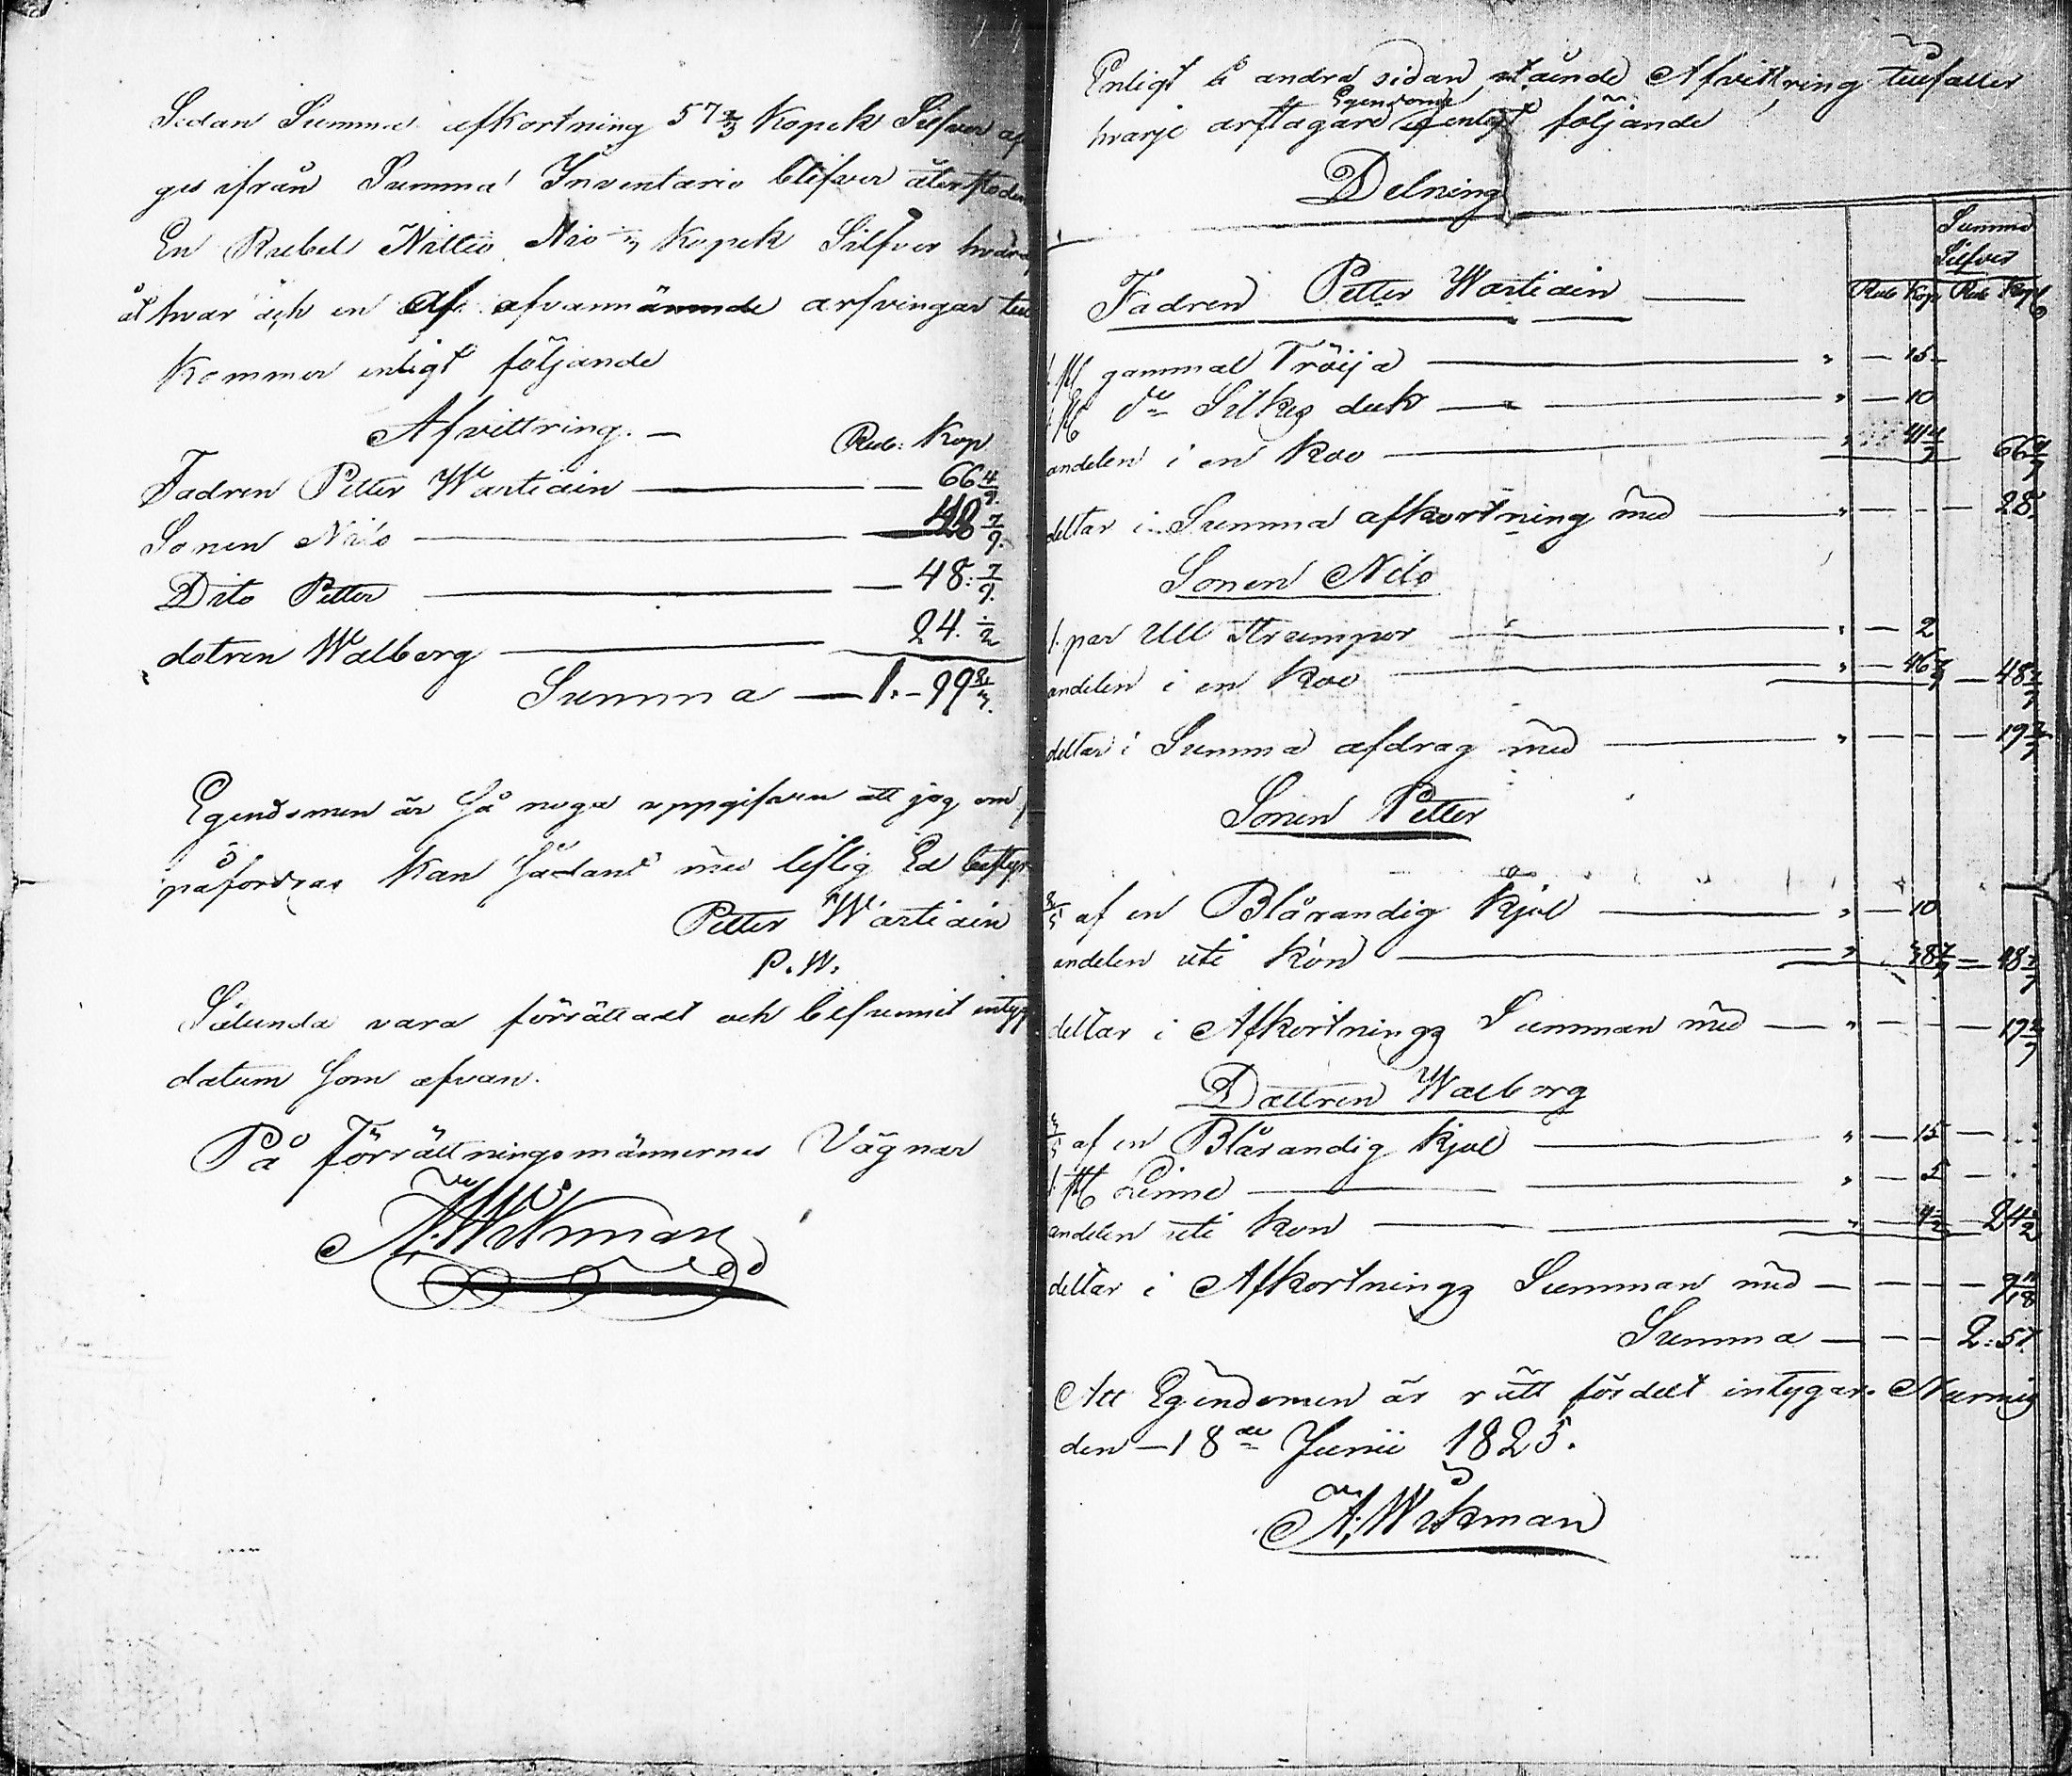 Sedan Summa afkortning 57 2/3 Kopek Silfver af
ges ifrån Summa Inventario blifver återstoden
En Rubel Nittio Nio 1/3 Kopek Silfver hvaraf
åt hvar och en af ofvannämnde arfvingar till
Kommer enligt följande
Afvittring. Rub: Kop
Fadren Petter Wartiain — 66 4/9.
Sonen Nils — 48 7/9.
Dito Petter — 48. 7/9.
dotren Walborg — 24. 1/2
Summa — 1. - 99
Egendomen är så noga uppgifven att jag om
påfordras Kan sådant med liflig Ed bestyr
Petter Wartiain
P. W.
Sålunda vara förrättadt och befunnit intyg
datum som ofvan.
På Förrättningsmännernes Vägnar
A. Wikman
Enligt å andra sidan stående Afvittring tillfaller
hvarje arftagare Egendome enligt följande
Delning
Summa
Silfver
Rub Kop Rub Kop
Fadren Petter Wartiain
1. st gammal Tröija — " — 15
1. st do Silkes duk — " — 10
andelen i en Ko — " 41 4/9 66 4/9
deltar i Summa afkortning med — " — 28.
Sonen Nils
1. par Ull strumpor — " — 2
andelen i en Ko — " — 46 7/9 — 48 7/9
deltar i Summa afdrag med — " — 19
Sonen Petter
2/5 af en Blårandig Kjol — " — 10
andelen uti Kon — " 38 7/9 — 48 7/9
deltar i Afkortnings Summan med — " — 19
Dottren Walborg
3/5 af en Blårandig Kjol — " — 15
1. st Linne — " — 5
andelen uti Kon — " — 4 1/2 — 24 1/2
deltar i Afkortnings Summan med — 9 11/18
Summa — 2: 57.
Att Egendomen är rätt fördelt intygar. Nurmis
den 18de Junii 1825.
A. Wikman